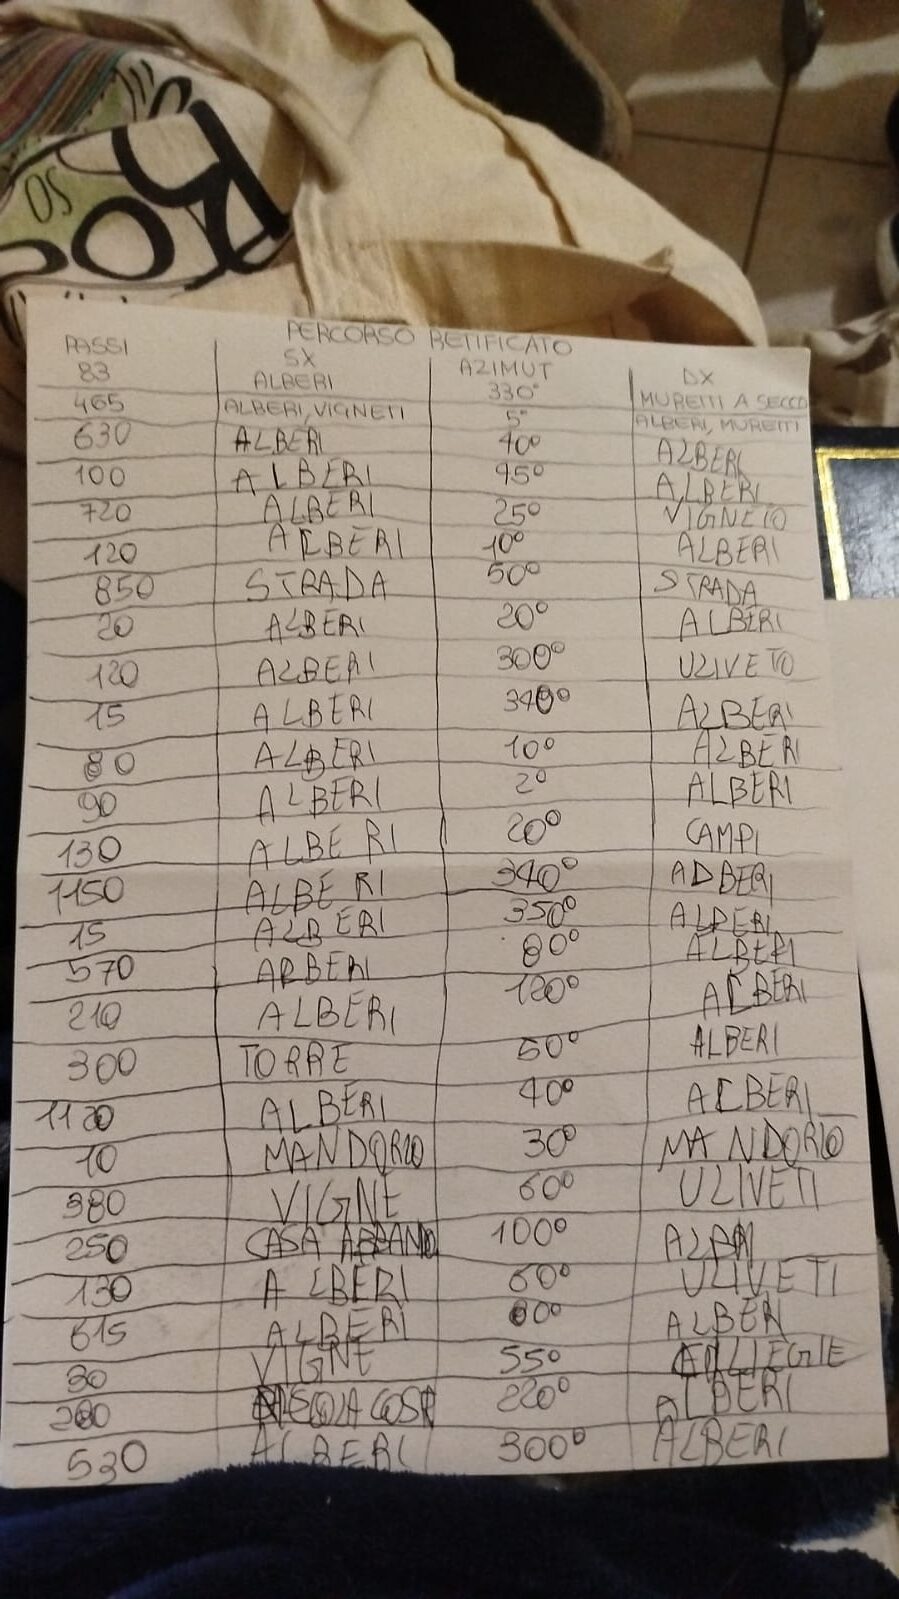 OS
ROC
PERCORSO RETIFICATO
PASSI SX AZIMUT DX
83 ALBERI 330° MURETTI A SECCO
465 ALBERI, VIGNETI 5° ALBERI, MURETTI
630 ALBERI 40° ALBERI
100 ALBERI 95° ALBERI
720 ALBERI 25° VIGNETO
120 ALBERI 10° ALBERI
850 STRADA 50° STRADA
20 ALBERI 20° ALBERI
120 ALBERI 300° ULIVETO
15 ALBERI 340° ALBERI
80 ALBERI 10° ALBERI
90 ALBERI 2° ALBERI
130 ALBERI 20° CAMPI
1150 ALBERI 340° ALBERI
15 ALBERI 350° ALBERI
570 ALBERI 80° ALBERI
210 ALBERI 120° ALBERI
300 TORRE 50° ALBERI
1120 ALBERI 40° ALBERI
10 MANDORLO 30° MANDORLO
380 VIGNE 60° ULIVETI
250 CASA ABBAND 100°
130 ALBERI 60° ULIVETI
615 ALBERI 80° ALBERI
30 VIGNE 55°
280 220° ALBERI
530 ALBERI 300° ALBERI